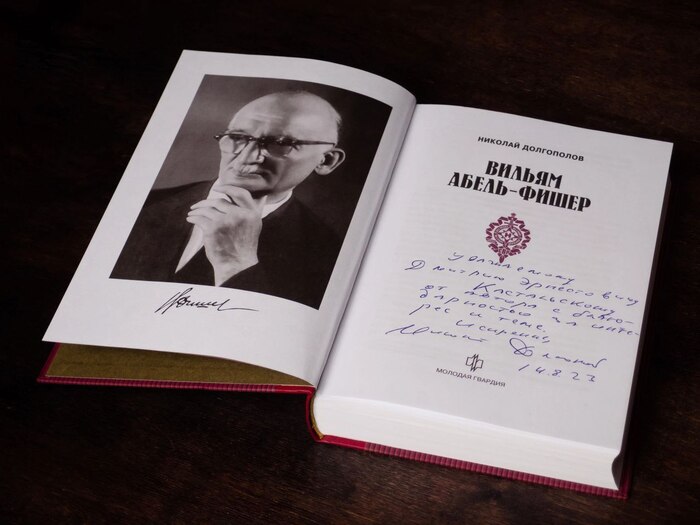 НИКОЛАЙ ДОЛГОПОЛОВ
ВИЛЬЯМ
АБЕЛЬ-ФИШЕР
Уважаемому
Дмитрию Эрнестовичу
Кастальскому
от автора с благо-
дарностью за инте-
рес к теме
Искренне,
Николай Долгополов
14.8.23
МОЛОДАЯ ГВАРДИЯ